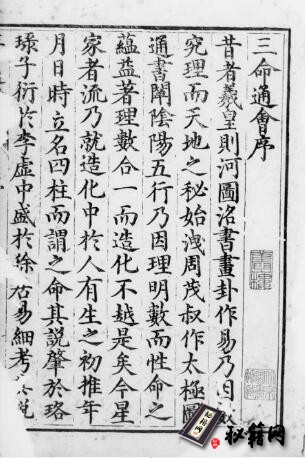 三命通會序
昔者羲皇則河圖洛書畫卦作易乃因
究理而天地之秘始洩周茂叔作太極圖
通書闡陰陽五行乃因理明數而性命之
蘊益著理數合一而造化不越是矣今星
家者流乃就造化中於人有生之初推年
月日時立名四柱而謂之命其說肇於珞
琭子衍於李虛中盛於徐居易細考其說
秘籍网
秘籍网